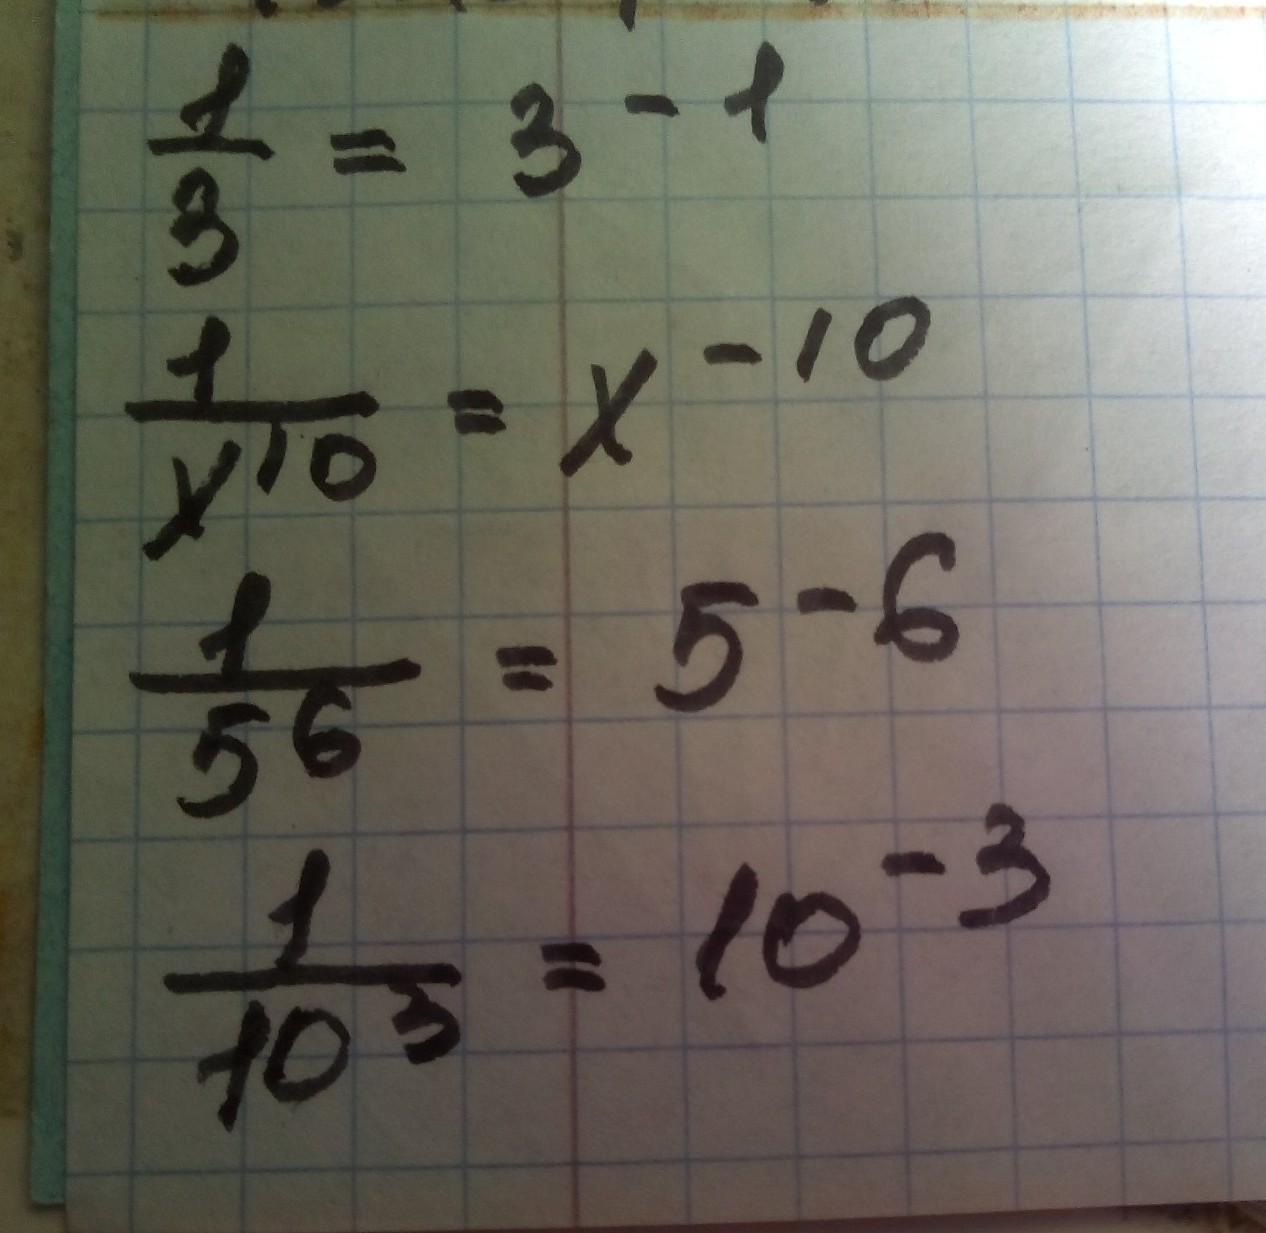 1/3 = 3^-1
1/x^10 = x^-10
1/5^6 = 5^-6
1/10^3 = 10^-3